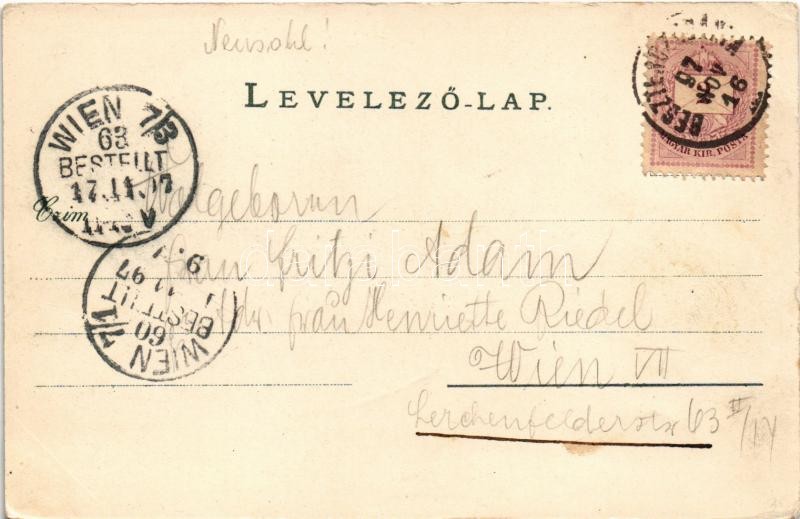 Neusohl!
LEVELEZŐ-LAP.
BESZTERCZEBÁNYA
97 NOV 16
MAGYAR KIR. POSTA
WIEN 7/3
63
BESTELLT
17.11.97
Czim
Wolgeboren
Frau Fritzi Adam
Adr. frau Henriette Riedel
Wien VII
Lerchenfelderstr 63 II/14
WIEN 7/1
60
BESTELLT
11 97